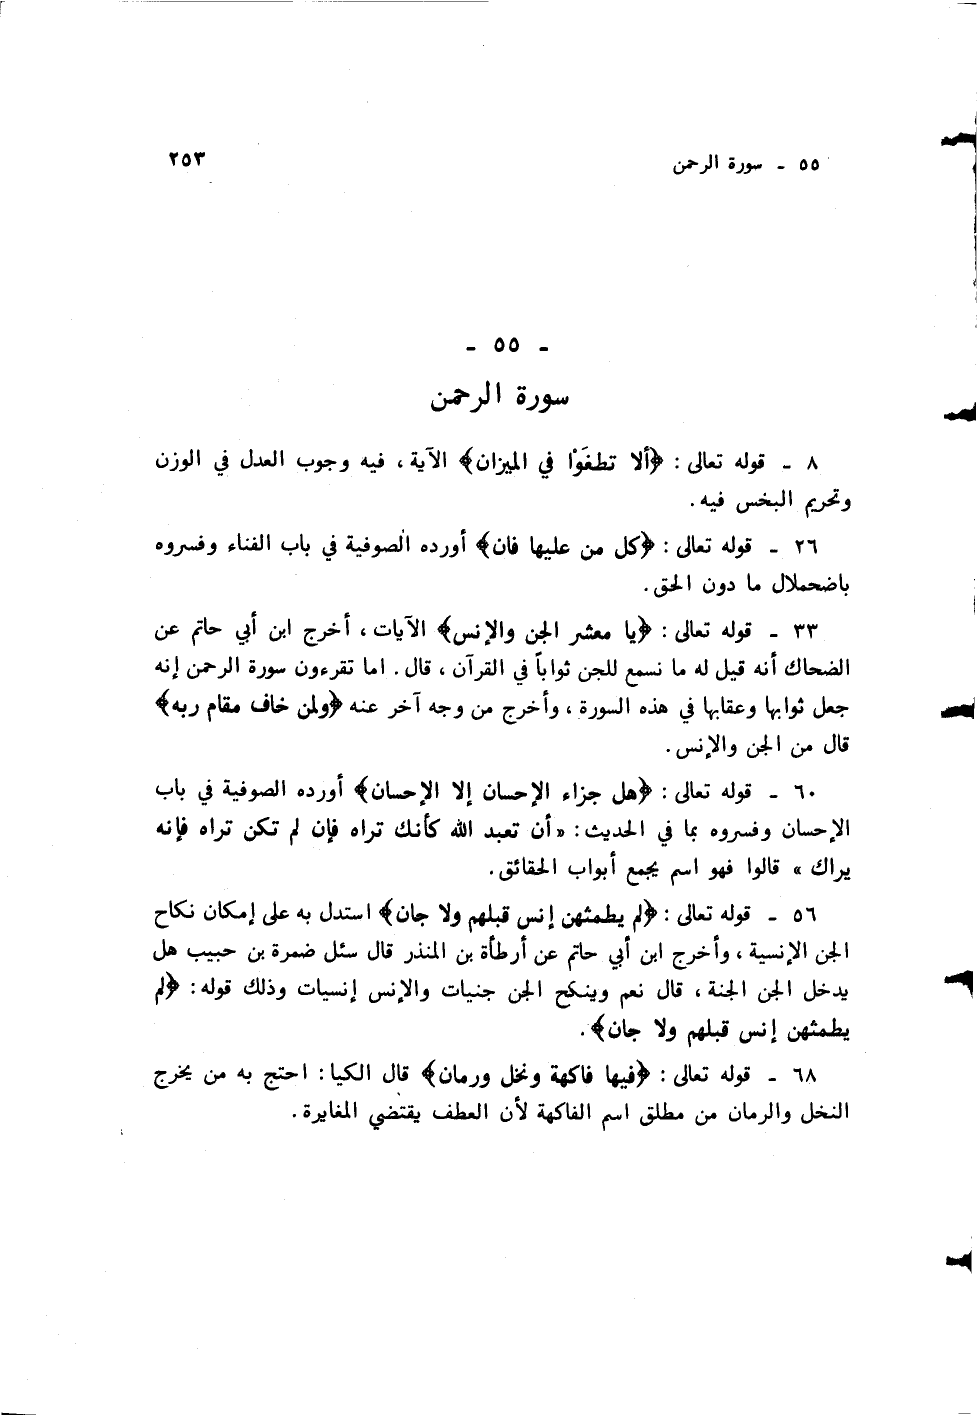 ٥٥ ـ سورة الرحمن
٢٥٣
ـ ٥٥ ـ
سورة الرحمن
٨ ـ قوله تعالى : ﴿ألا تطغَوْا في الميزان﴾ الآية ، فيه وجوب العدل في الوزن
وتحريم البخس فيه .
٢٦ ـ قوله تعالى : ﴿كل من عليها فان﴾ أورده الصوفية في باب الفناء وفسروه
باضحملال ما دون الحق .
٣٣ ـ قوله تعالى : ﴿يا معشر الجن والإنس﴾ الآيات ، أخرج ابن أبي حاتم عن
الضحاك أنه قيل له ما نسمع للجن ثواباً في القرآن ، قال . اما تقرءون سورة الرحمن إنه
جعل ثوابها وعقابها في هذه السورة ، وأخرج من وجه آخر عنه ﴿ولمن خاف مقام ربه﴾
قال من الجن والإنس .
٦٠ ـ قوله تعالى : ﴿هل جزاء الإحسان إلا الإحسان﴾ أورده الصوفية في باب
الإحسان وفسروه بما في الحديث : « أن تعبد الله كأنك تراه فإن لم تكن تراه فإنه
يراك » قالوا فهو اسم يجمع أبواب الحقائق .
٥٦ ـ قوله تعالى : ﴿لم يطمثهن إنس قبلهم ولا جان﴾ استدل به على إمكان نكاح
الجن الإنسية ، وأخرج ابن أبي حاتم عن أرطأة بن المنذر قال سئل ضمرة بن حبيب هل
يدخل الجن الجنة ، قال نعم وينكح الجن جنيات والإنس إنسيات وذلك قوله : ﴿لم
يطمثهن إنس قبلهم ولا جان﴾ .
٦٨ ـ قوله تعالى : ﴿فيها فاكهة ونخل ورمان﴾ قال الكيا : احتج به من يخرج
النخل والرمان من مطلق اسم الفاكهة لأن العطف يقتضي المغايرة .